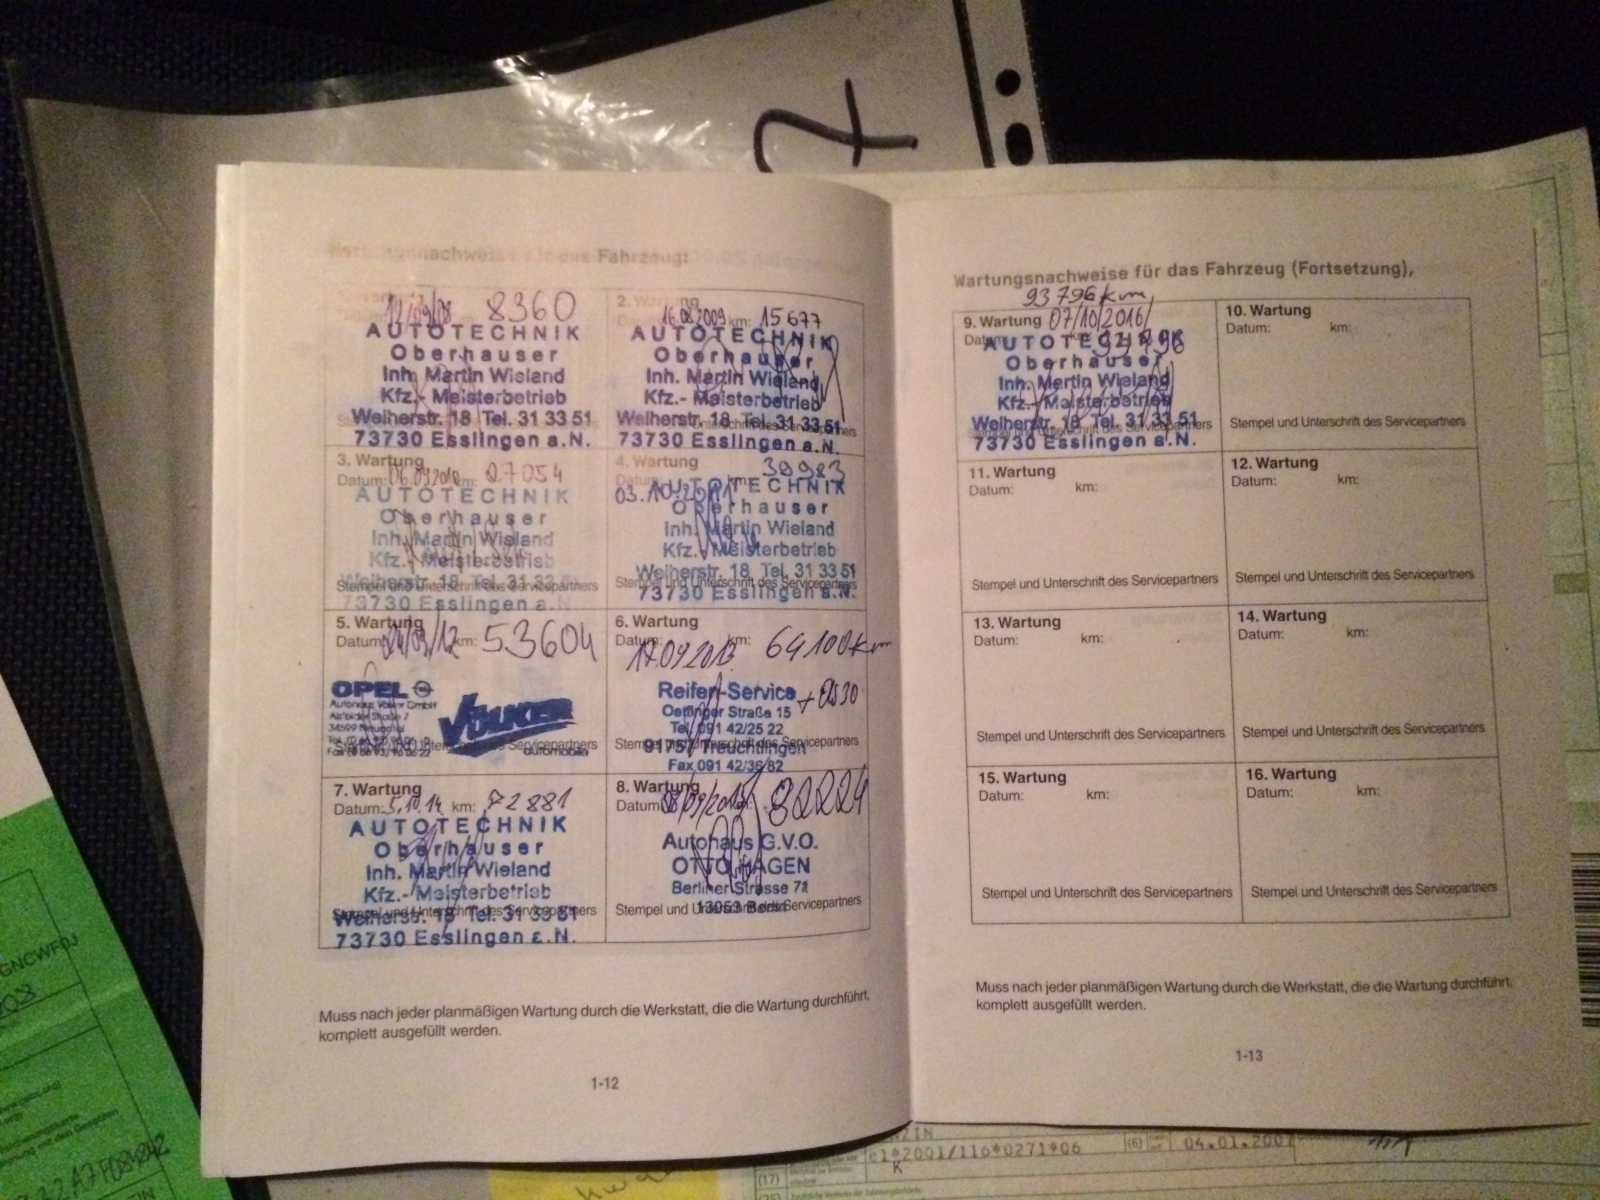 7
Wartungsnachweise für das Fahrzeug:
8360
AUTOTECHNIK
Oberhauser
Inh. Martin Wieland
Kfz.- Meisterbetrieb
Weiherstr. 18 Tel. 31 33 51
73730 Esslingen a.N.
2. Wartung
16.08.2009 km: 15677
AUTOTECHNIK
Oberhauser
Inh. Martin Wieland
Kfz.- Meisterbetrieb
Weiherstr. 18 Tel. 31 33 51
73730 Esslingen a.N.
3. Wartung
Datum: km: 27054
AUTOTECHNIK
Oberhauser
Inh. Martin Wieland
Kfz.- Meisterbetrieb
Weiherstr. 18 Tel. 31 33 51
Stempel und Unterschrift des Servicepartners
73730 Esslingen a.N.
4. Wartung
03.10.2011
AUTOTECHNIK
Oberhauser
Inh. Martin Wieland
Kfz.- Meisterbetrieb
Weiherstr. 18 Tel. 31 33 51
Stempel und Unterschrift des Servicepartners
73730 Esslingen a.N.
5. Wartung
Datum: km: 53604
OPEL
Autohaus Völker GmbH
VÖLKER
automobile
Stempel und Unterschrift des Servicepartners
6. Wartung
Datum: km: 64100km
17.09.2013
Reifen-Service
Oettinger Straße 15
Tel. 091 42/25 22
Stempel und Unterschrift des Servicepartners
91757 Treuchtlingen
Fax 091 42/36 82
7. Wartung
Datum: 5.10.14 km: 72881
AUTOTECHNIK
Oberhauser
Inh. Martin Wieland
Kfz.- Meisterbetrieb
Stempel und Unterschrift des Servicepartners
Weiherstr. 18 Tel. 31 33 51
73730 Esslingen a.N.
8. Wartung
Datum: 82224
Autohaus G.V.O.
OTTO HAGEN
Berliner Strasse 71
Stempel und Unterschrift des Servicepartners
Muss nach jeder planmäßigen Wartung durch die Werkstatt, die die Wartung durchführt,
komplett ausgefüllt werden.
1-12
Wartungsnachweise für das Fahrzeug (Fortsetzung),
93796km
9. Wartung 07/10/2016
Datum: 93796
AUTOTECHNIK
Oberhauser
Inh. Martin Wieland
Kfz.- Meisterbetrieb
Weiherstr. 18 Tel. 31 33 51
Stempel und Unterschrift des Servicepartners
73730 Esslingen a.N.
10. Wartung
Datum: km:
Stempel und Unterschrift des Servicepartners
11. Wartung
Datum: km:
Stempel und Unterschrift des Servicepartners
12. Wartung
Datum: km:
Stempel und Unterschrift des Servicepartners
13. Wartung
Datum: km:
Stempel und Unterschrift des Servicepartners
14. Wartung
Datum: km:
Stempel und Unterschrift des Servicepartners
15. Wartung
Datum: km:
Stempel und Unterschrift des Servicepartners
16. Wartung
Datum: km:
Stempel und Unterschrift des Servicepartners
Muss nach jeder planmäßigen Wartung durch die Werkstatt, die die Wartung durchführt,
komplett ausgefüllt werden.
1-13
e1*2001/116*0271*06
K
(6) 04.01.2007
(17)